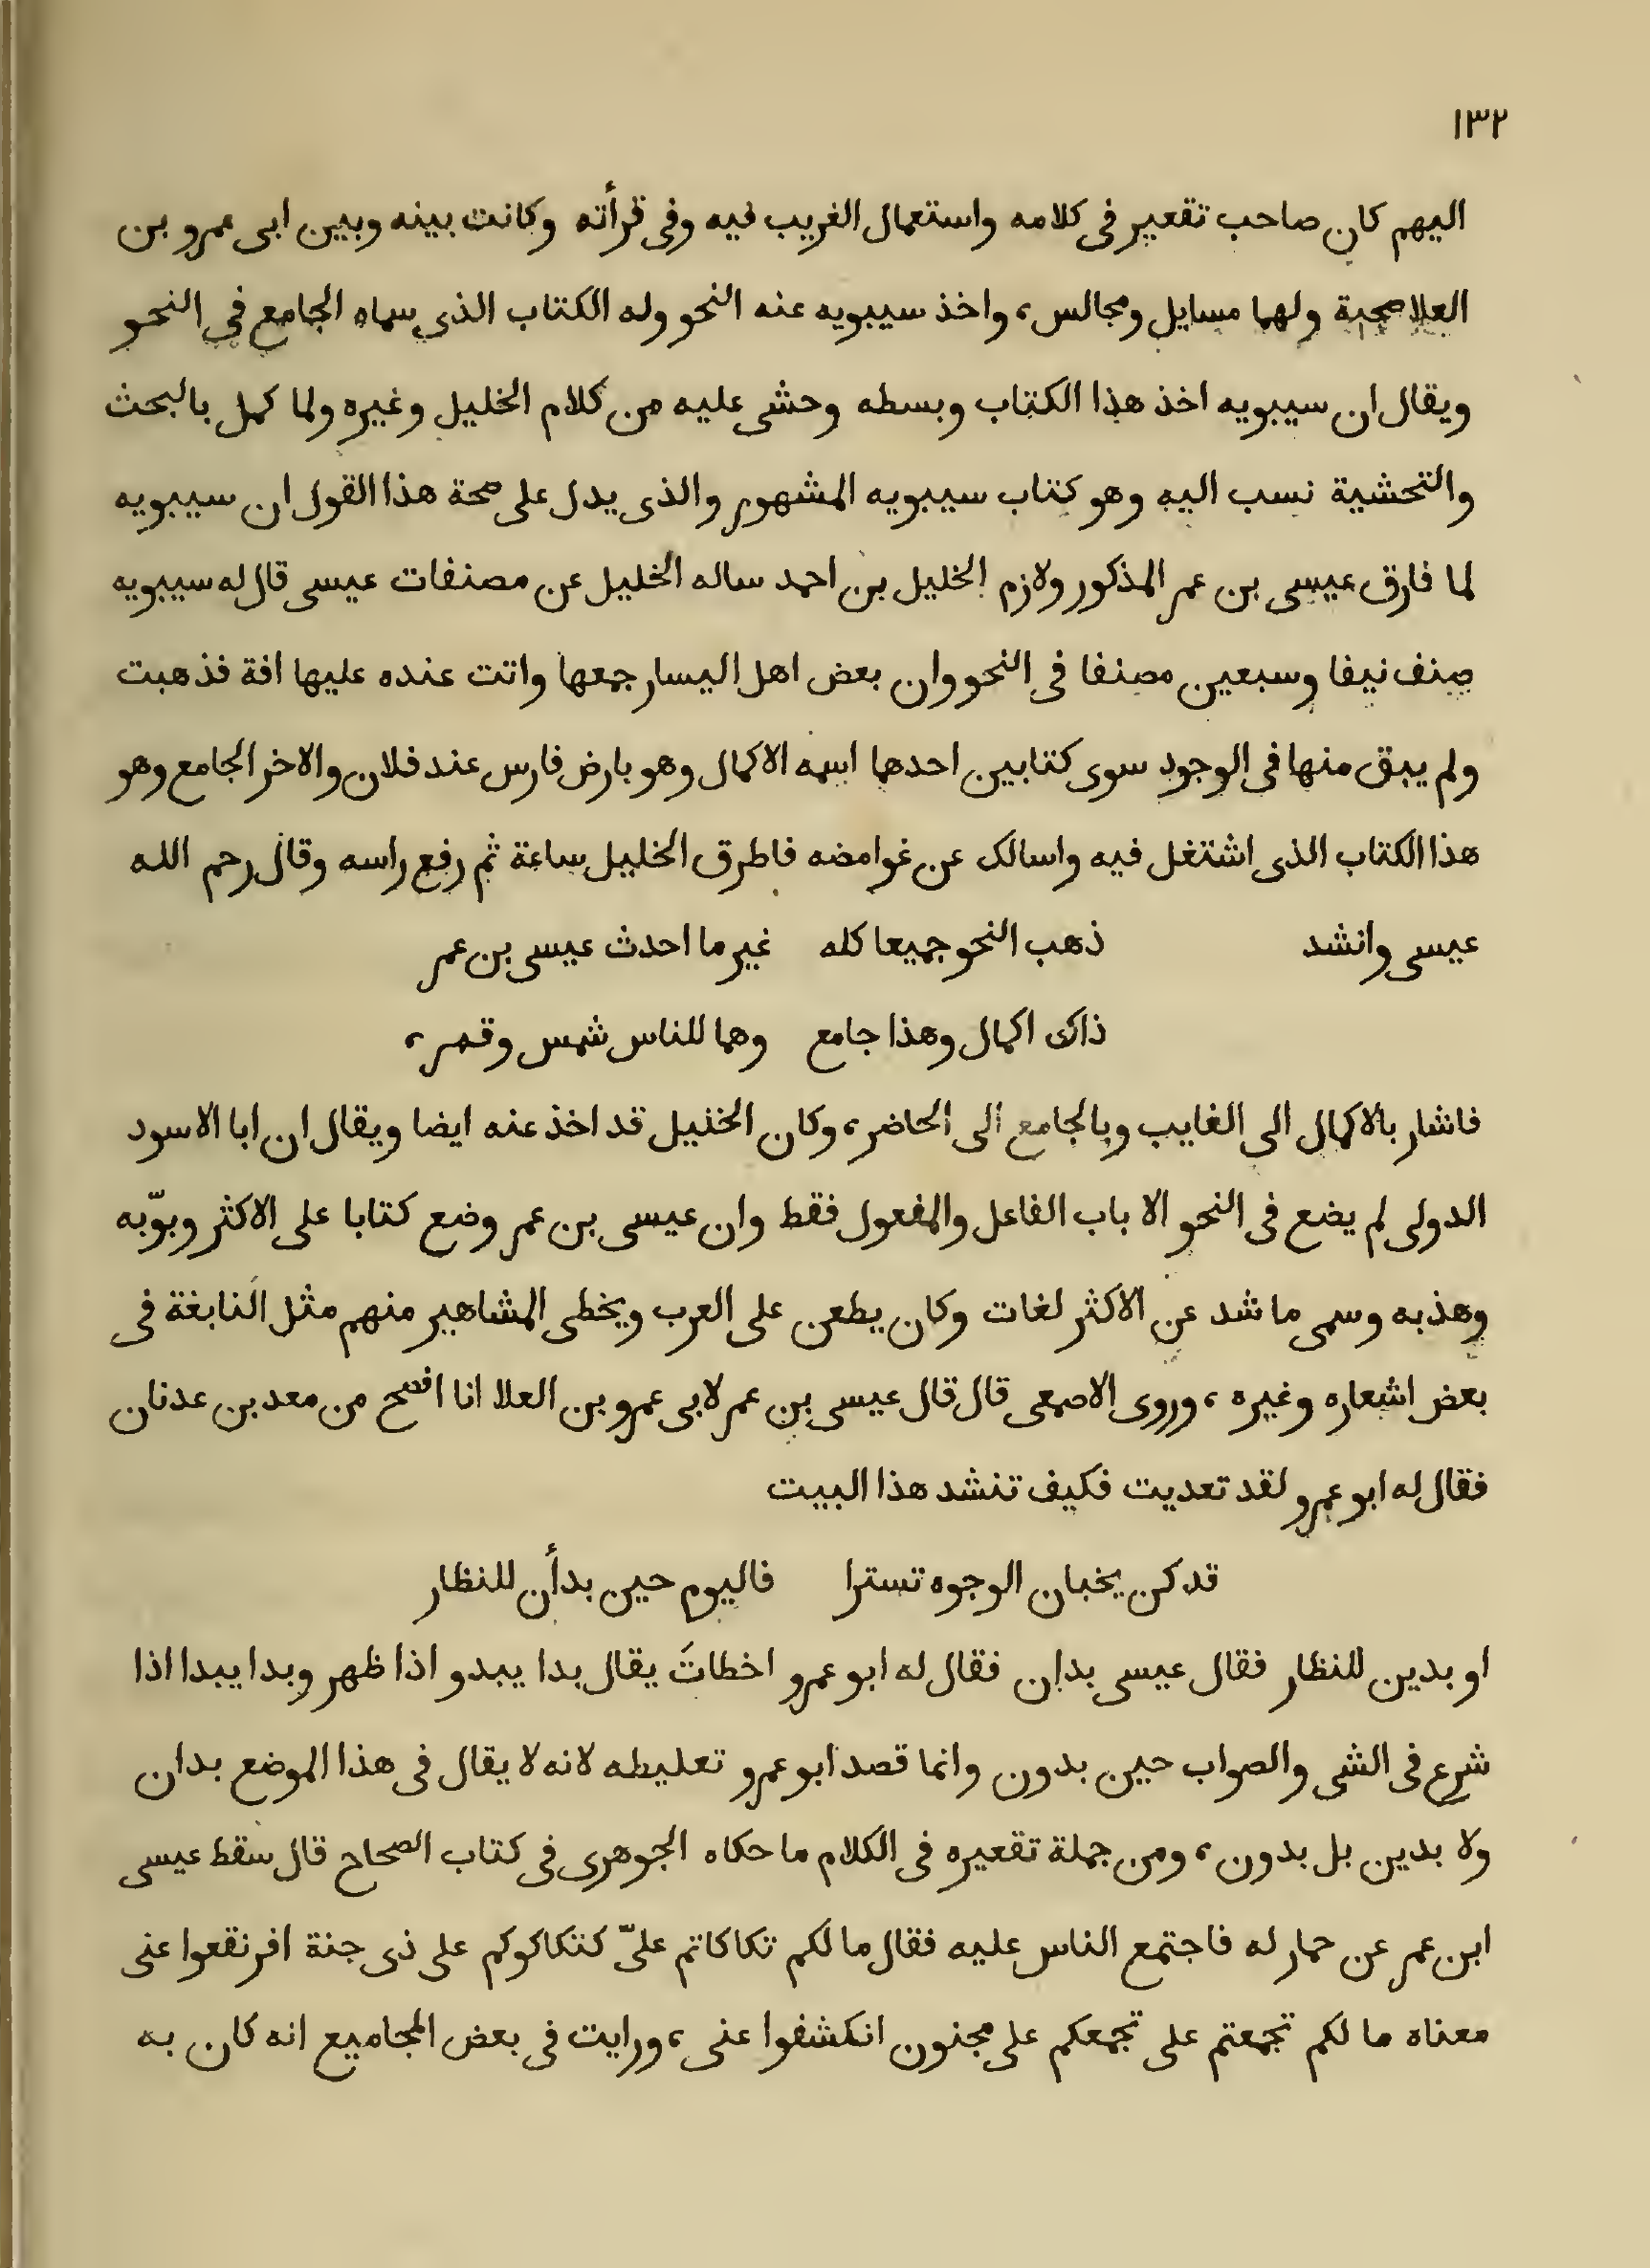 ١٣٢
اليهم كان صاحب تقعير فى كلامه واستعمال الغريب فيه وفى قرأته وكانت بينه وبين ابى عمرو بن
العلا صحبة ولهما مسايل ومجالس، واخذ سيبويه عنه النحو وله الكتاب الذى سماه الجامع فى النحو
ويقال ان سيبويه اخذ هذا الكتاب وبسطه وحشى عليه من كلام الخليل وغيره ولما كمل بالبحث
والتحشية نسب اليه وهو كتاب سيبويه المشهور والذى يدل على صحة هذا القول ان سيبويه
لما فارق عيسى بن عمر المذكور ولازم الخليل بن احمد ساله الخليل عن مصنفات عيسى قال له سيبويه
صنف نيفا وسبعين مصنفا فى النحو وان بعض اهل اليسار جمعها واتت عنده عليها افة فذهبت
ولم يبق منها فى الوجود سوى كتابين احدهما اسمه الاكمال وهو بارض فارس عند فلان والاخر الجامع وهو
هذا الكتاب الذى اشتغل فيه واسالك عن غوامضه فاطرق الخليل ساعة ثم رفع راسه وقال رحم الله
عيسى وانشد ذهب النحو جميعا كله غير ما احدث عيسى بن عمر
ذاك اكمال وهذا جامع وهما للناس شمس وقمر،
فاشار بالاكمال الى الغايب وبالجامع الى الحاضر، وكان الخليل قد اخذ عنه ايضا ويقال ان ابا الاسود
الدولى لم يضع فى النحو الا باب الفاعل والمفعول فقط وان عيسى بن عمر وضع كتابا على الاكثر وبوّبه
وهذبه وسمى ما شد عن الاكثر لغات وكان يطعن على العرب ويخطى المشاهير منهم مثل النابغة فى
بعض اشعاره وغيره، وروى الاصمعى قال قال عيسى بن عمر لابى عمرو بن العلا انا افصح من معد بن عدنان
فقال له ابو عمرو لقد تعديت فكيف تنشد هذا البيت
قد كن يخبان الوجوه تسترا فاليوم حين بدأن للنظار
او بدين للنظار فقال عيسى بدان فقال له ابو عمرو اخطاتَ يقال بدا يبدو اذا ظهر وبدا يبدا اذا
شرع فى الشى والصواب حين بدون وانما قصد ابو عمرو تغليطه لانه لا يقال فى هذا الموضع بدان
ولا بدين بل بدون، ومن جملة تقعيره فى الكلام ما حكاه الجوهرى فى كتاب الصحاح قال سقط عيسى
ابن عمر عن حمار له فاجتمع الناس عليه فقال ما لكم تكاكاتم علىّ كتكاكوكم على ذى جنة افرنقعوا عنى
معناه ما لكم تجمعتم على تجمعكم على مجنون انكشفوا عنى، ورايت فى بعض المجاميع انه كان به